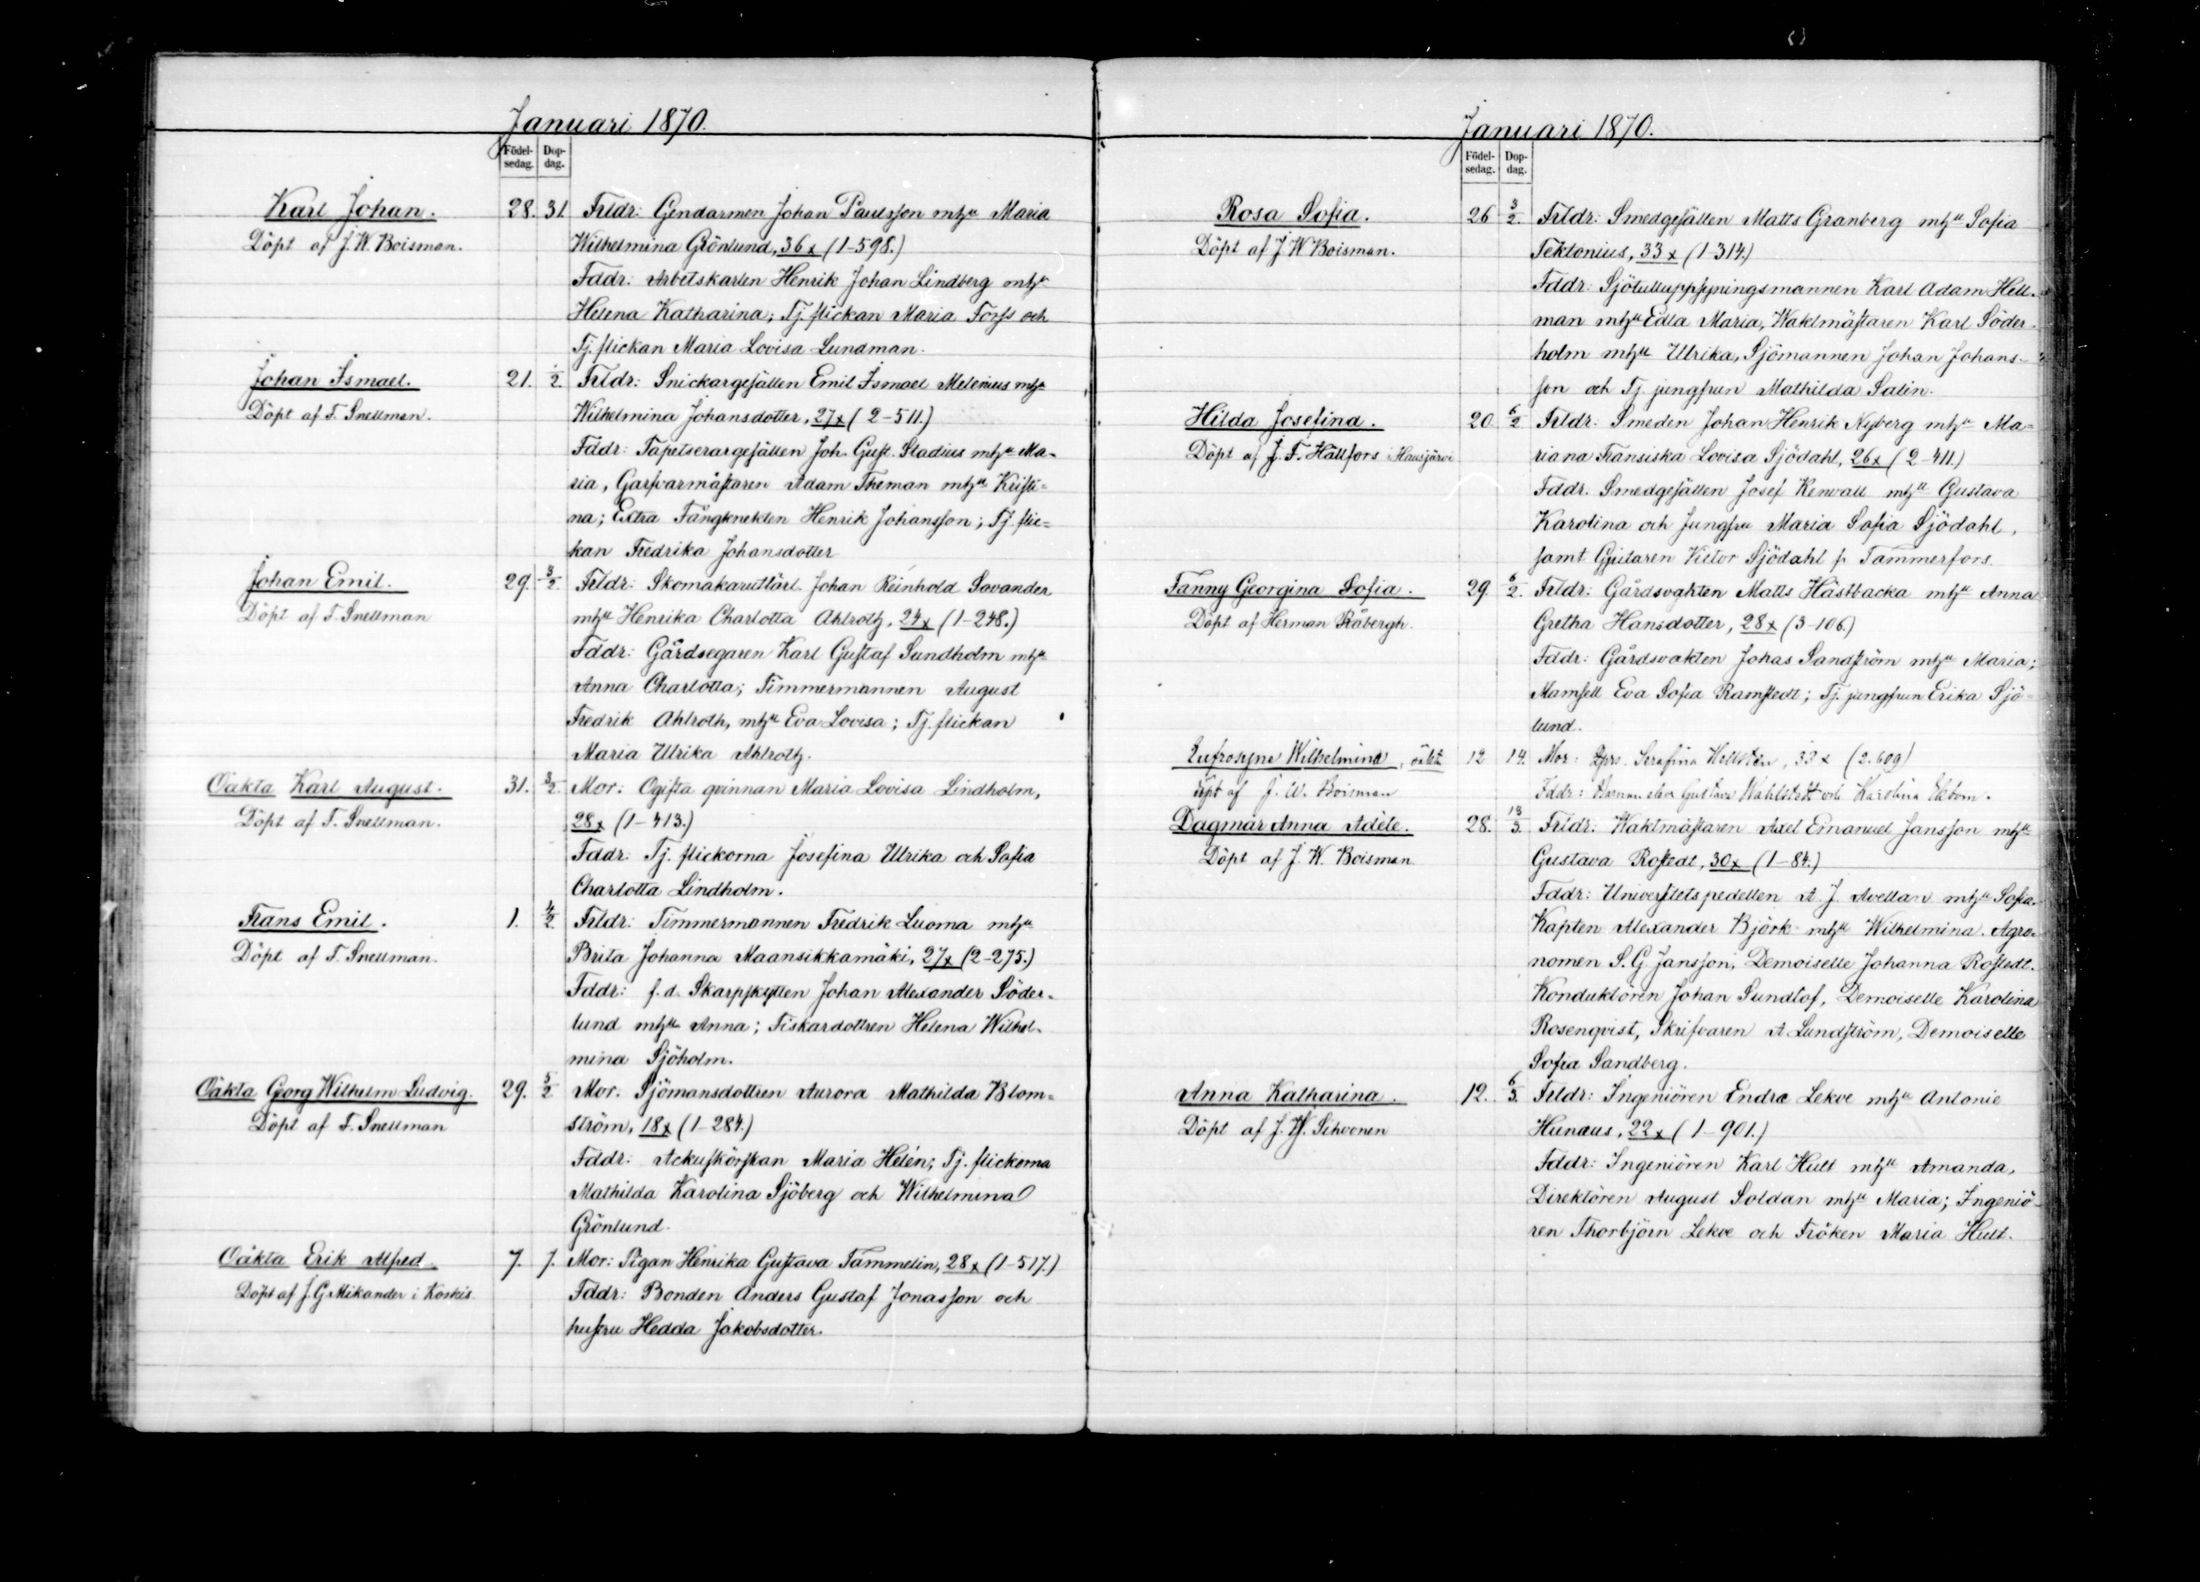 Januari 1870.
Födel-
sedag.
Dop-
dag.
Karl Johan.
Döpt af J. W. Boisman.
28. 31.
Frldr: Gendarmen Johan Paulsson mhu Maria
Wilhelmina Grönlund, 36x (1-598.)
Fddr: Arbetskarlen Henrik Johan Lindberg mhu
Helena Katharina; Tj. flickan Maria Forss och
Tj. flickan Maria Lovisa Lundman.
Johan Ismael.
Döpt af F. Snellman.
21. 1/2.
Frldr: Snickargesällen Emil Ismael Melenius mhu
Wilhelmina Johansdotter, 27x (2-511.)
Fddr: Tapetserargesällen Joh. Gust. Stadius mhu Ma-
ria, Garfvarmästaren Adam Theman mhu Kristi=
na; Extra Fångknekten Henrik Johansson; Tj. flic=
kan Fredrika Johansdotter
Johan Emil.
Döpt af F. Snellman
29. 3/2
Frldr: Skomakareutlärl. Johan Reinhold Savander
mhu Henrika Charlotta Ahlroth, 24x (1-248.)
Fddr: Gårdsegaren Karl Gustaf Sundholm mhu
Anna Charlotta; Timmermannen August
Fredrik Ahlroth, mhu Eva Lovisa; Tj. flickan
Maria Ulrika Ahlroth.
Oäkta Karl August.
Döpt af F. Snellman.
31. 3/2
Mor: Ogifta qvinnan Maria Lovisa Lindholm,
28x (1-413.)
Fddr: Tj. flickorna Josefina Ulrika och Sofia
Charlotta Lindholm.
Frans Emil.
Döpt af F. Snellman.
1. 4/2.
Frldr: Timmermannen Fredrik Luoma mhu
Brita Johanna Maansikkamäki, 27x (2-275.)
Fddr: f. d. Skarpskytten Johan Alexander Söder-
lund mhu Anna; Fiskardottren Helena Wilhel-
mina Sjöholm.
Oäkta Georg Wilhelm Ludvig.
Döpt af F. Snellman
29. 5/2
Mor. Sjömansdottren Aurora Mathilda Blom=
ström, 18x (1-284.)
Fddr: Ackuskörskan Maria Helén; Tj. flickorna
Mathilda Karolina Sjöberg och Wilhelmina
Grönlund.
Oäkta Erik Alfred.
Döpt af J. G. Mikander i Koskis
7. 7.
Mor: Pigan Henrika Gustava Tammelin, 28x (1-517.)
Fddr: Bonden Anders Gustaf Jonasson och
hustru Hedda Jakobsdotter.
Januari 1870.
Födel-
sedag.
Dop-
dag.
Rosa Sofia.
Döpt af J. W. Boisman.
26 3/2.
Frldr: Smedgesällen Matts Granberg mhu Sofia
Tektonius, 33x (1-314.)
Fddr: Sjötulluppsyningsmannen Karl Adam Hell-
man mhu Edla Maria, Waktmästaren Karl Söder-
holm mhu Ulrika, Sjömannen Johan Johans-
son och Tj. jungfrun Mathilda Salin.
Hilda Josefina.
Döpt af J. F. Hällfors i Hausjärvi
20. 6/2
Frldr: Smeden Johan Henrik Nyberg mhu Ma=
riana Fransiska Lovisa Sjödahl, 26x (2-411.)
Fddr. Smedgesällen Josef Renvall mhu Gustava
Karolina och Jungfru Maria Sofia Sjödahl,
samt Gjutaren Victor Sjödahl fr. Tammerfors.
Fanny Georgina Sofia.
Döpt af Herman Råbergh.
29. 6/2.
Frldr: Gårdsvagten Matts Hästbacka mhu Anna
Gretha Hansdotter, 28x (3-106.)
Fddr: Gårdsvakten Johas Sandström mhu Maria;
Mamsell Eva Sofia Ramstedt; Tj. jungfrun Erika Sjö=
lund.
Eufrosyne Wilhelmina, oäkta
Döpt af J. W. Boisman
12 14.
Mor: Serafina Hellstén, 33x (2.609)
Fddr: Gustava Wahlstedt och Karolina Ekbom.
Dagmar Anna Adèle.
Döpt af J. W. Boisman
28. 13/3.
Frldr: Waktmästaren Axel Emanuel Jansson mhu
Gustava Rostedt, 30x (1-84.)
Fddr: Universitetspedellen A. J. Avellan mhu Sofia.
Kapten Alexander Björk mhu Wilhelmina. Agro-
nomen S. G. Jansson, Demoiselle Johanna Rostedt.
Konduktören Johan Sundlof, Demoiselle Karolina
Rosenqvist, Skrifvaren A. Lundström, Demoiselle
Sofia Sandberg.
Anna Katharina.
Döpt af J. W. Sihvonen
12. 6/3.
Frldr: Ingeniören Endre Lekve mhu Antonie
Hunaus, 22x (1-901.)
Fddr: Ingeniören Karl Hult mhu Amanda,
Direktören August Soldan mhu Maria; Ingeniö-
ren Thorbjörn Lekve och Fröken Maria Hult.